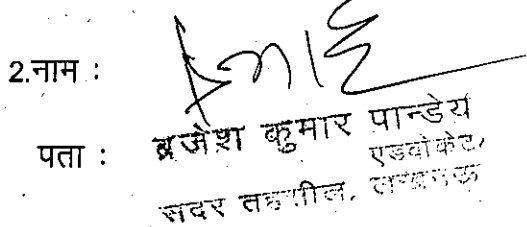 2.नाम :
पता : ब्रजेश कुमार पान्डेय
एडवोकेट,
सदर तहसील, लखनऊ